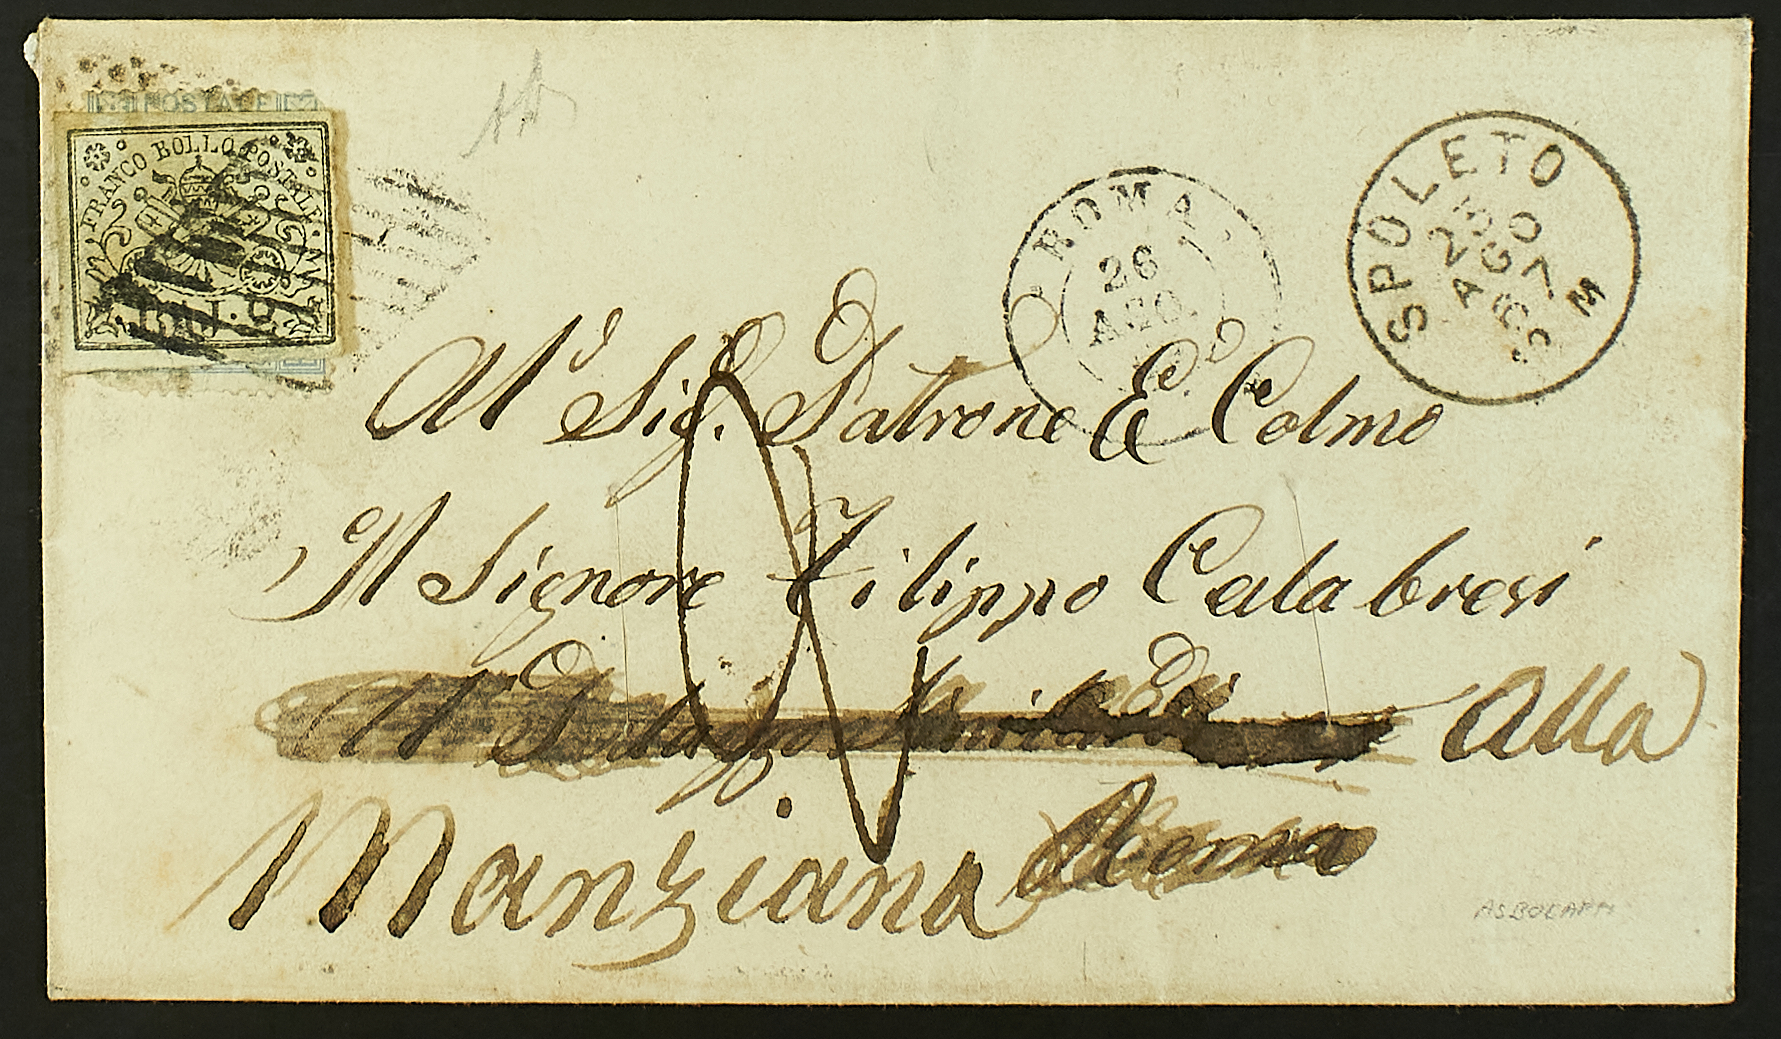 POSTALE
FRANCO BOLLO POSTALE
BAJ. 2
ROMA
26
AGO
SPOLETO
25 AGO 67
M
Al Sig. Patrone E Colmo
Il Signore Filippo Calabresi
Al Palazzo Alla
Manziana Roma